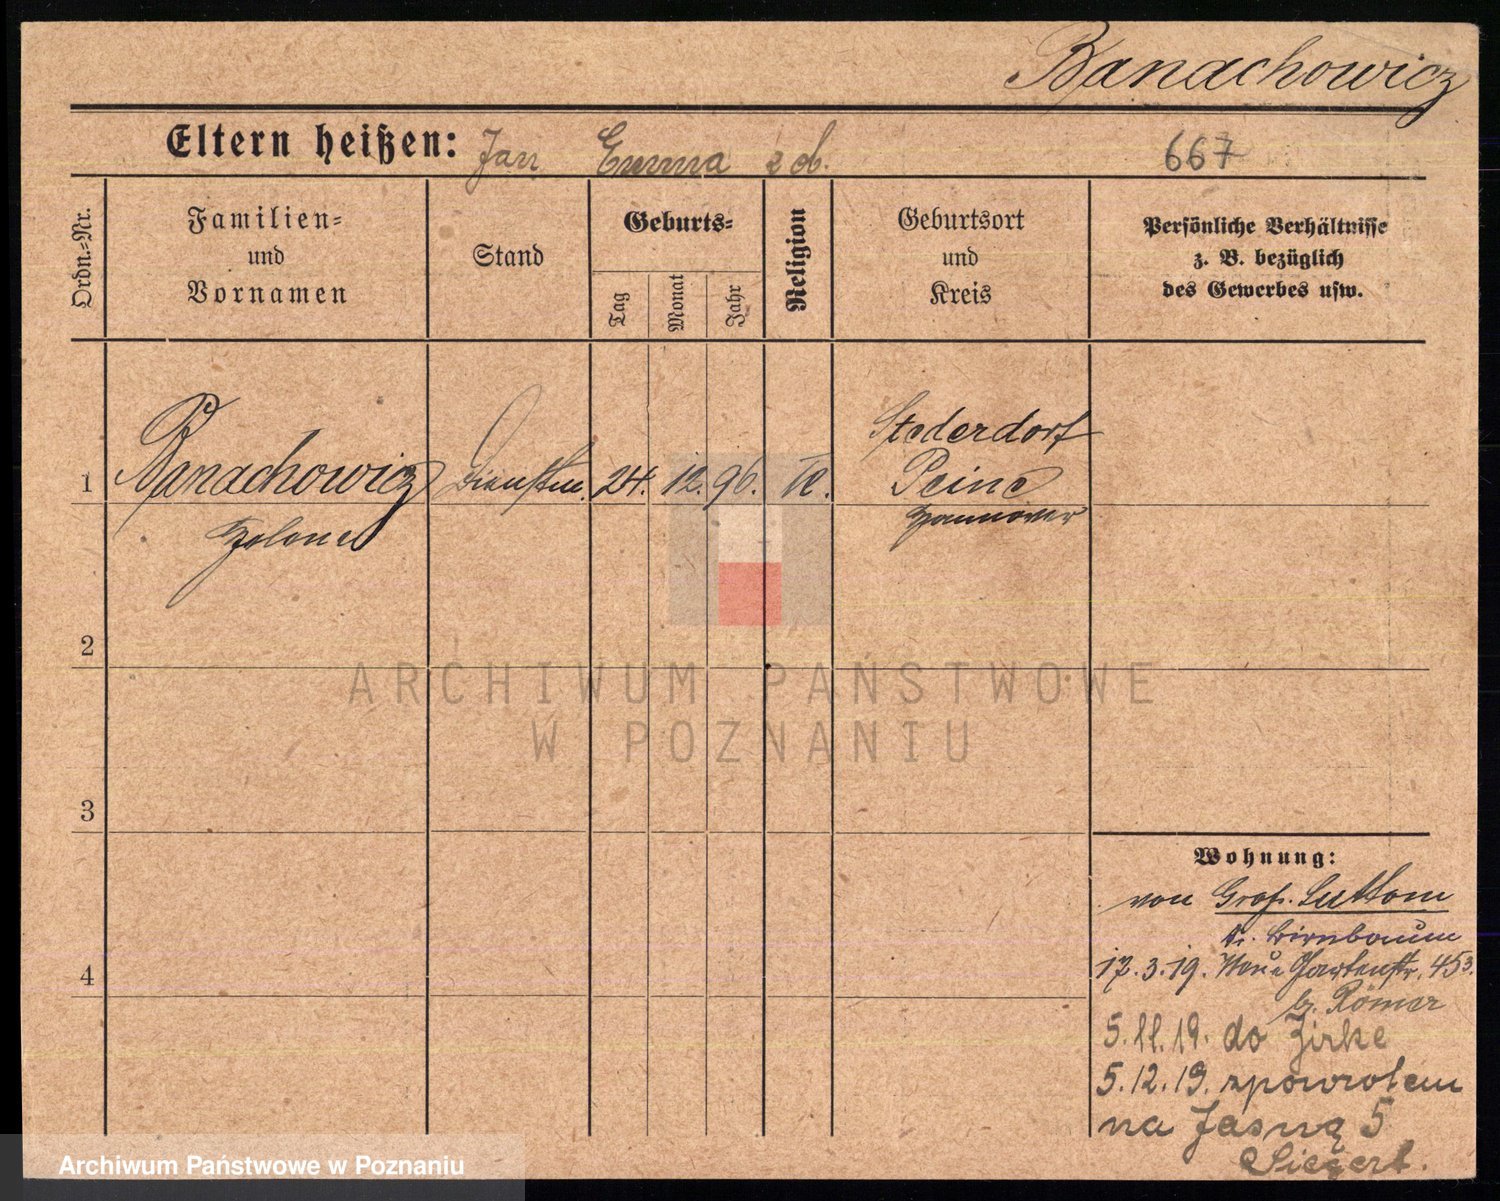 Banachowicz
Eltern heißen: Jan Emma z d. 667
Ordn.=Nr.
Familien=
und
Vornamen
Stand
Geburts=
Tag
Monat
Jahr
Religion
Geburtsort
und
Kreis
Persönliche Verhältnisse
z. B. bezüglich
des Gewerbes usw.
1 Banachowicz Dienstm. 24. 12. 96. K. Stederdorf
Peine
Hannover
2
3
4
Wohnung:
von Grof. Luttom
Kr. Birnbaum
17.3.19. Neue Gartenstr. 45³.
b. Römer
5.11.19. do Zirke
5.12.19. zpowrotem
na Jasną 5
Siegert.
ARCHIWUM PAŃSTWOWE
W POZNANIU
Archiwum Państwowe w Poznaniu